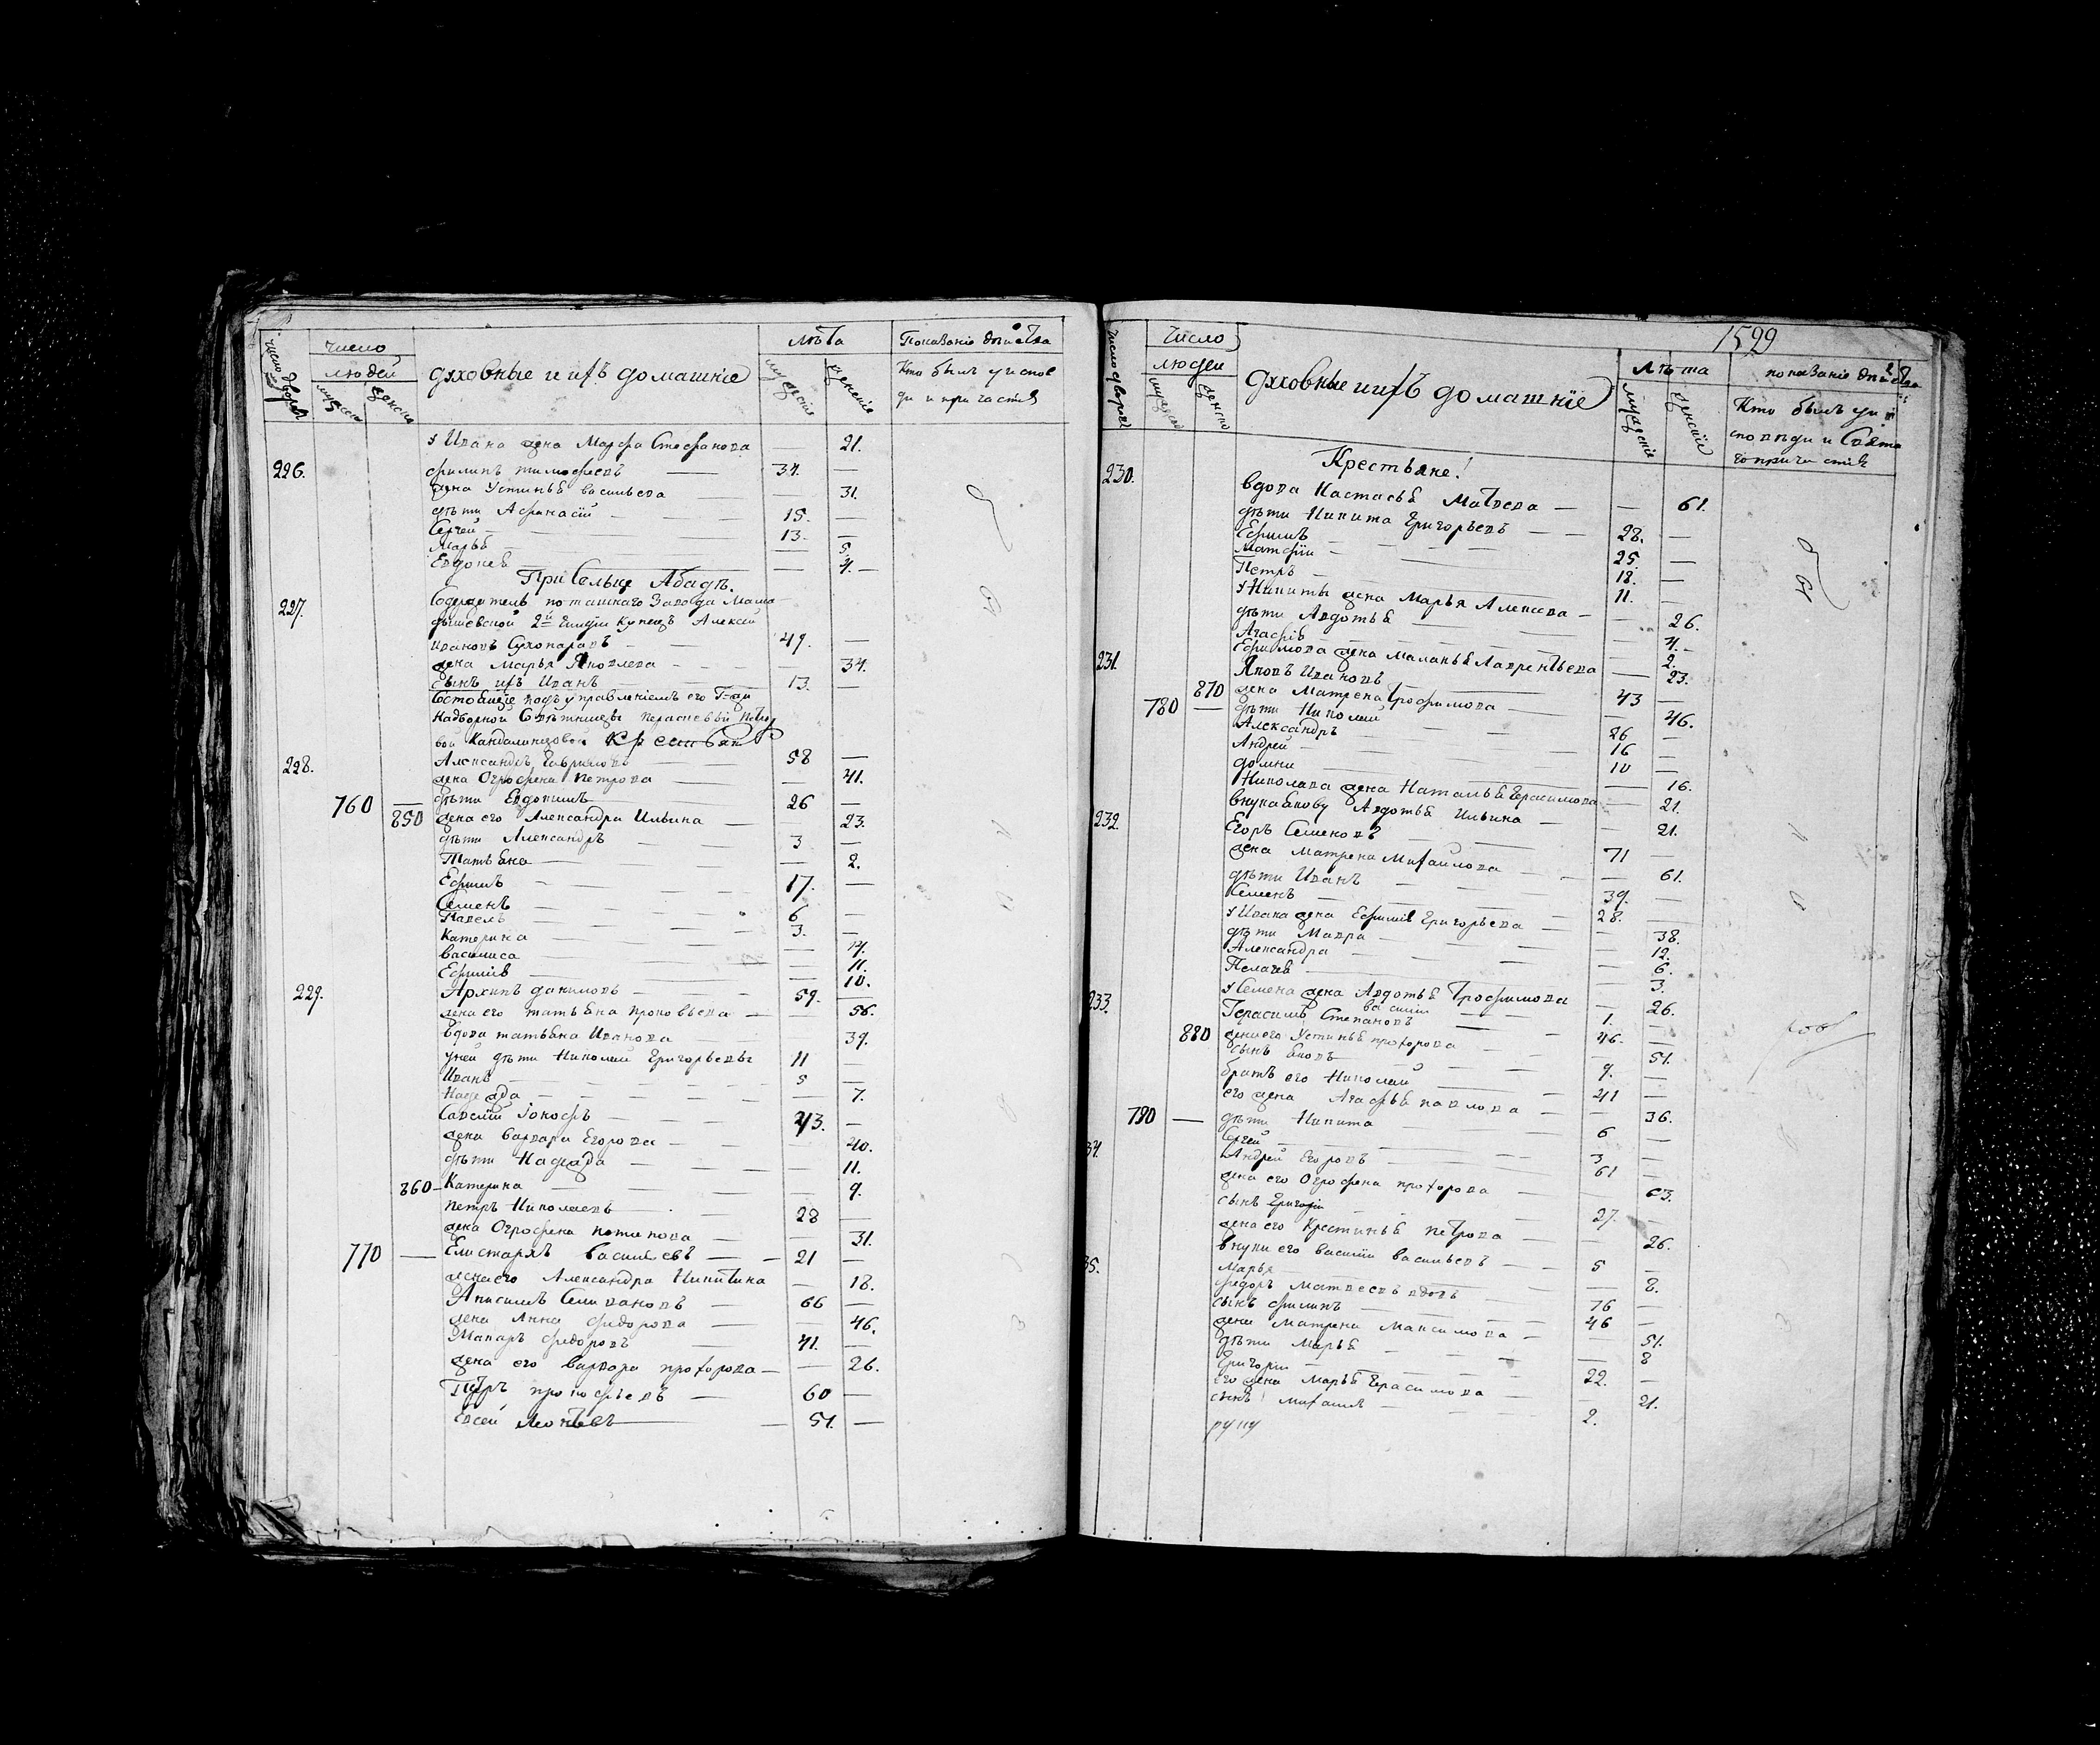 число дворовъ
число
людей
мужеска
женска
духовные и ихъ домашніе
лѣта
мужескіе
женскіе
Показаніе дѣйства
Кто былъ у испове
ди и причастія
у Ивана жена Марфа Стефанова — 21.
226. филипъ тимофеевъ — 34. —
жена Устинья васильева — 31.
дѣти Афанасій — 15. —
Сергей — 13. —
Марья — 5.
Евдокея — 4. —
При Сельце Абадъ.
227. Содержатель поташнаго Завода Мама
дышевской 2й Гилдіи купецъ Алексей
Ивановъ Сухопаровъ — 49. —
жена Марья Яковлева — 34.
сынъ ихъ Иванъ — 13. —
Состоящіе подъ управленіемъ его Г-жи
Надворной Совѣтницы
крестьян
228. Александръ Гавриловъ — 58 —
жена Огрофена Петрова — 41.
760 — дѣти Евдокимъ — 26 —
850 жена его Александра Ильина — 23.
дѣти Александръ — 3 —
Татьяна — 2.
Ефимъ — 17. —
Семенъ — 6 —
Павелъ — 3. —
Катерина — 14.
василиса — 11.
Ефимія — 10.
229. Архипъ даниловъ — 59. —
жена его татьяна прокофьева — 56.
вдова татьяна Иванова 39.
у ней дѣти Николай Григорьевъ 11 —
Иванъ — 5 —
Надежда — 7.
Савелій Іокофъ — 43. —
жена варвара Егорова — 40.
дѣти Надежда — 11.
860 — Катерина — 9.
петръ Николаевъ — 28 —
жена Огрофена потапова — 31.
770 — Елистаръ васильевъ — 21 —
жена его Александра Никитина — 18.
Анисимъ Селивановъ — 66 —
жена Анна федорова — 46.
Макаръ федоровъ — 41. —
жена его варвара прохорова — 26.
Петръ прокофьевъ — 60 —
Евсей Леонтьевъ — 51. —
1599
число дворовъ
Число
людей
мужеска
женска
духовные и ихъ домашніе
лѣта
мужескіе
женскіе
показаніе дѣйства
Кто былъ у и
споведи и Свята
го причастія
Крестьяне!
230. вдова Настасья Матвеева — — 61.
дѣти Никита Григорьевъ — 28. —
Ефимъ — 25. —
Матфіи — 18. —
Петръ — 11. —
у Никиты жена Марья Алексеева — 26.
дѣти Авдотья — 4. —
Агафія — 2.
Ефимова жена Маланья Лаврентьева — 23.
231. Яковъ Ивановъ — 43 —
870 жена Матрена Трофимова — 46.
780 — дѣти Николай — 26 —
Александръ — 16 —
Андрей — 10 —
домна — 16.
Николаева жена Наталья Герасимова — 21.
внука Якову Авдотья Ильина — 21.
232. Егоръ Семеновъ — 71 —
жена Матрена Михаилова — 61.
дѣти Иванъ — 39. —
Семенъ — 28. —
у Ивана жена Ефимія Григорьева — 38.
дѣти Мавра — 12.
Александра — 6.
Пелагея — 3.
у Семена жена Авдотья Трофимова — 26.
василій 1. —
233. Герасимъ Степановъ — 46. —
880 жена его Устинья прохорова — 51.
сынъ Яковъ — 9. —
братъ его Николай — 41 —
его жена Агафья павлова — 36.
790 — дѣти Никита — 6 —
Сергей — 3 —
34. Андрей Егоровъ — 61 —
жена его Огрофена прохорова — 63.
сынъ Григорій — 27. —
жена его Крестинья петрова — 26.
внуки его василій васильевъ — 5 —
Марья — 8.
35. федоръ Матвеевъ вдовъ — 76 —
сынъ филипъ — 46 —
жена Матрена Максимова — 51.
дѣти Марья — 8
Григорій — 22. —
его жена Марья Герасимова — 21.
сынъ Михаилъ — 2.